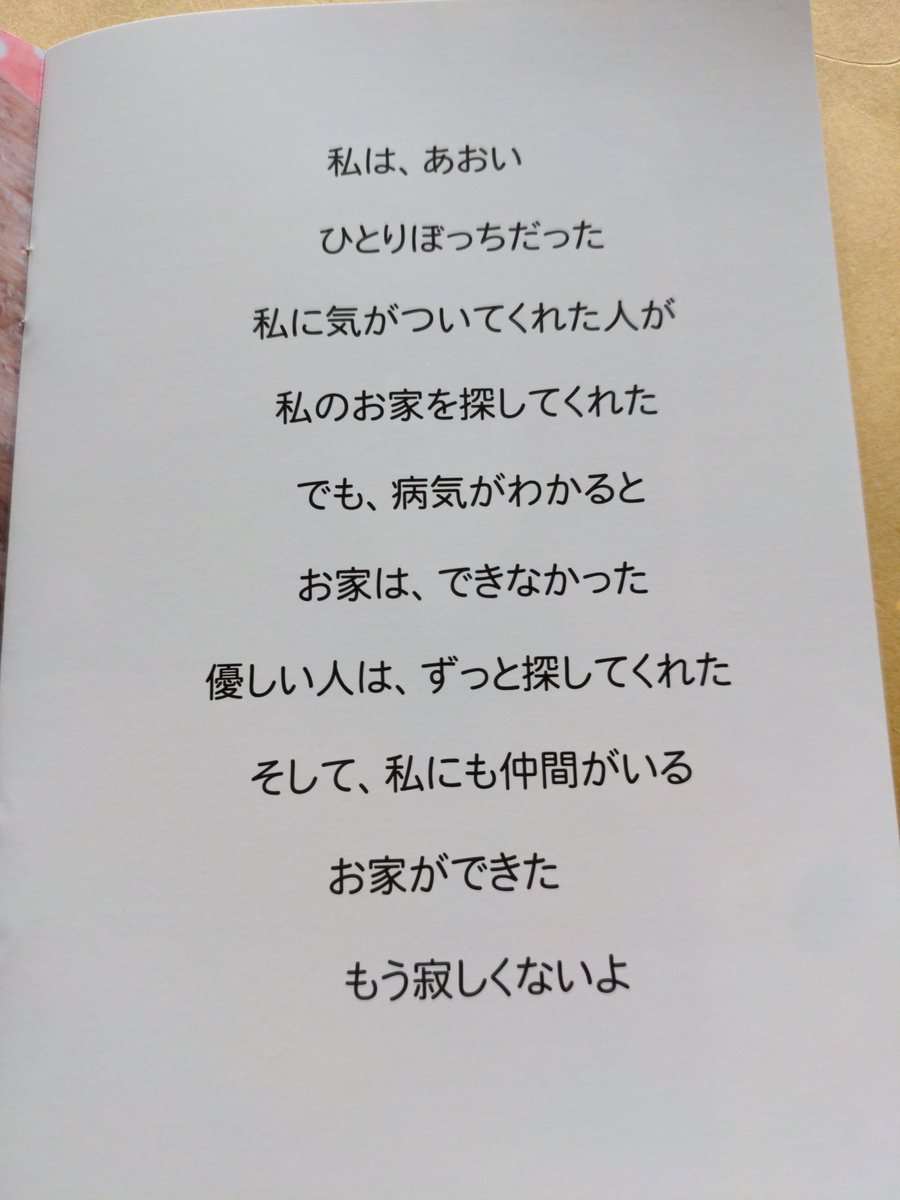 私は、あおい
ひとりぼっちだった
私に気がついてくれた人が
私のお家を探してくれた
でも、病気がわかると
お家は、できなかった
優しい人は、ずっと探してくれた
そして、私にも仲間がいる
お家ができた
もう寂しくないよ